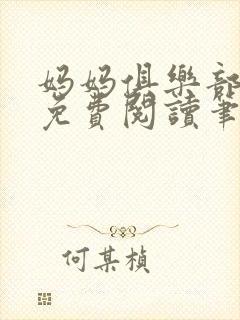 妈妈俱樂部
免費閱讀筆
何某楨